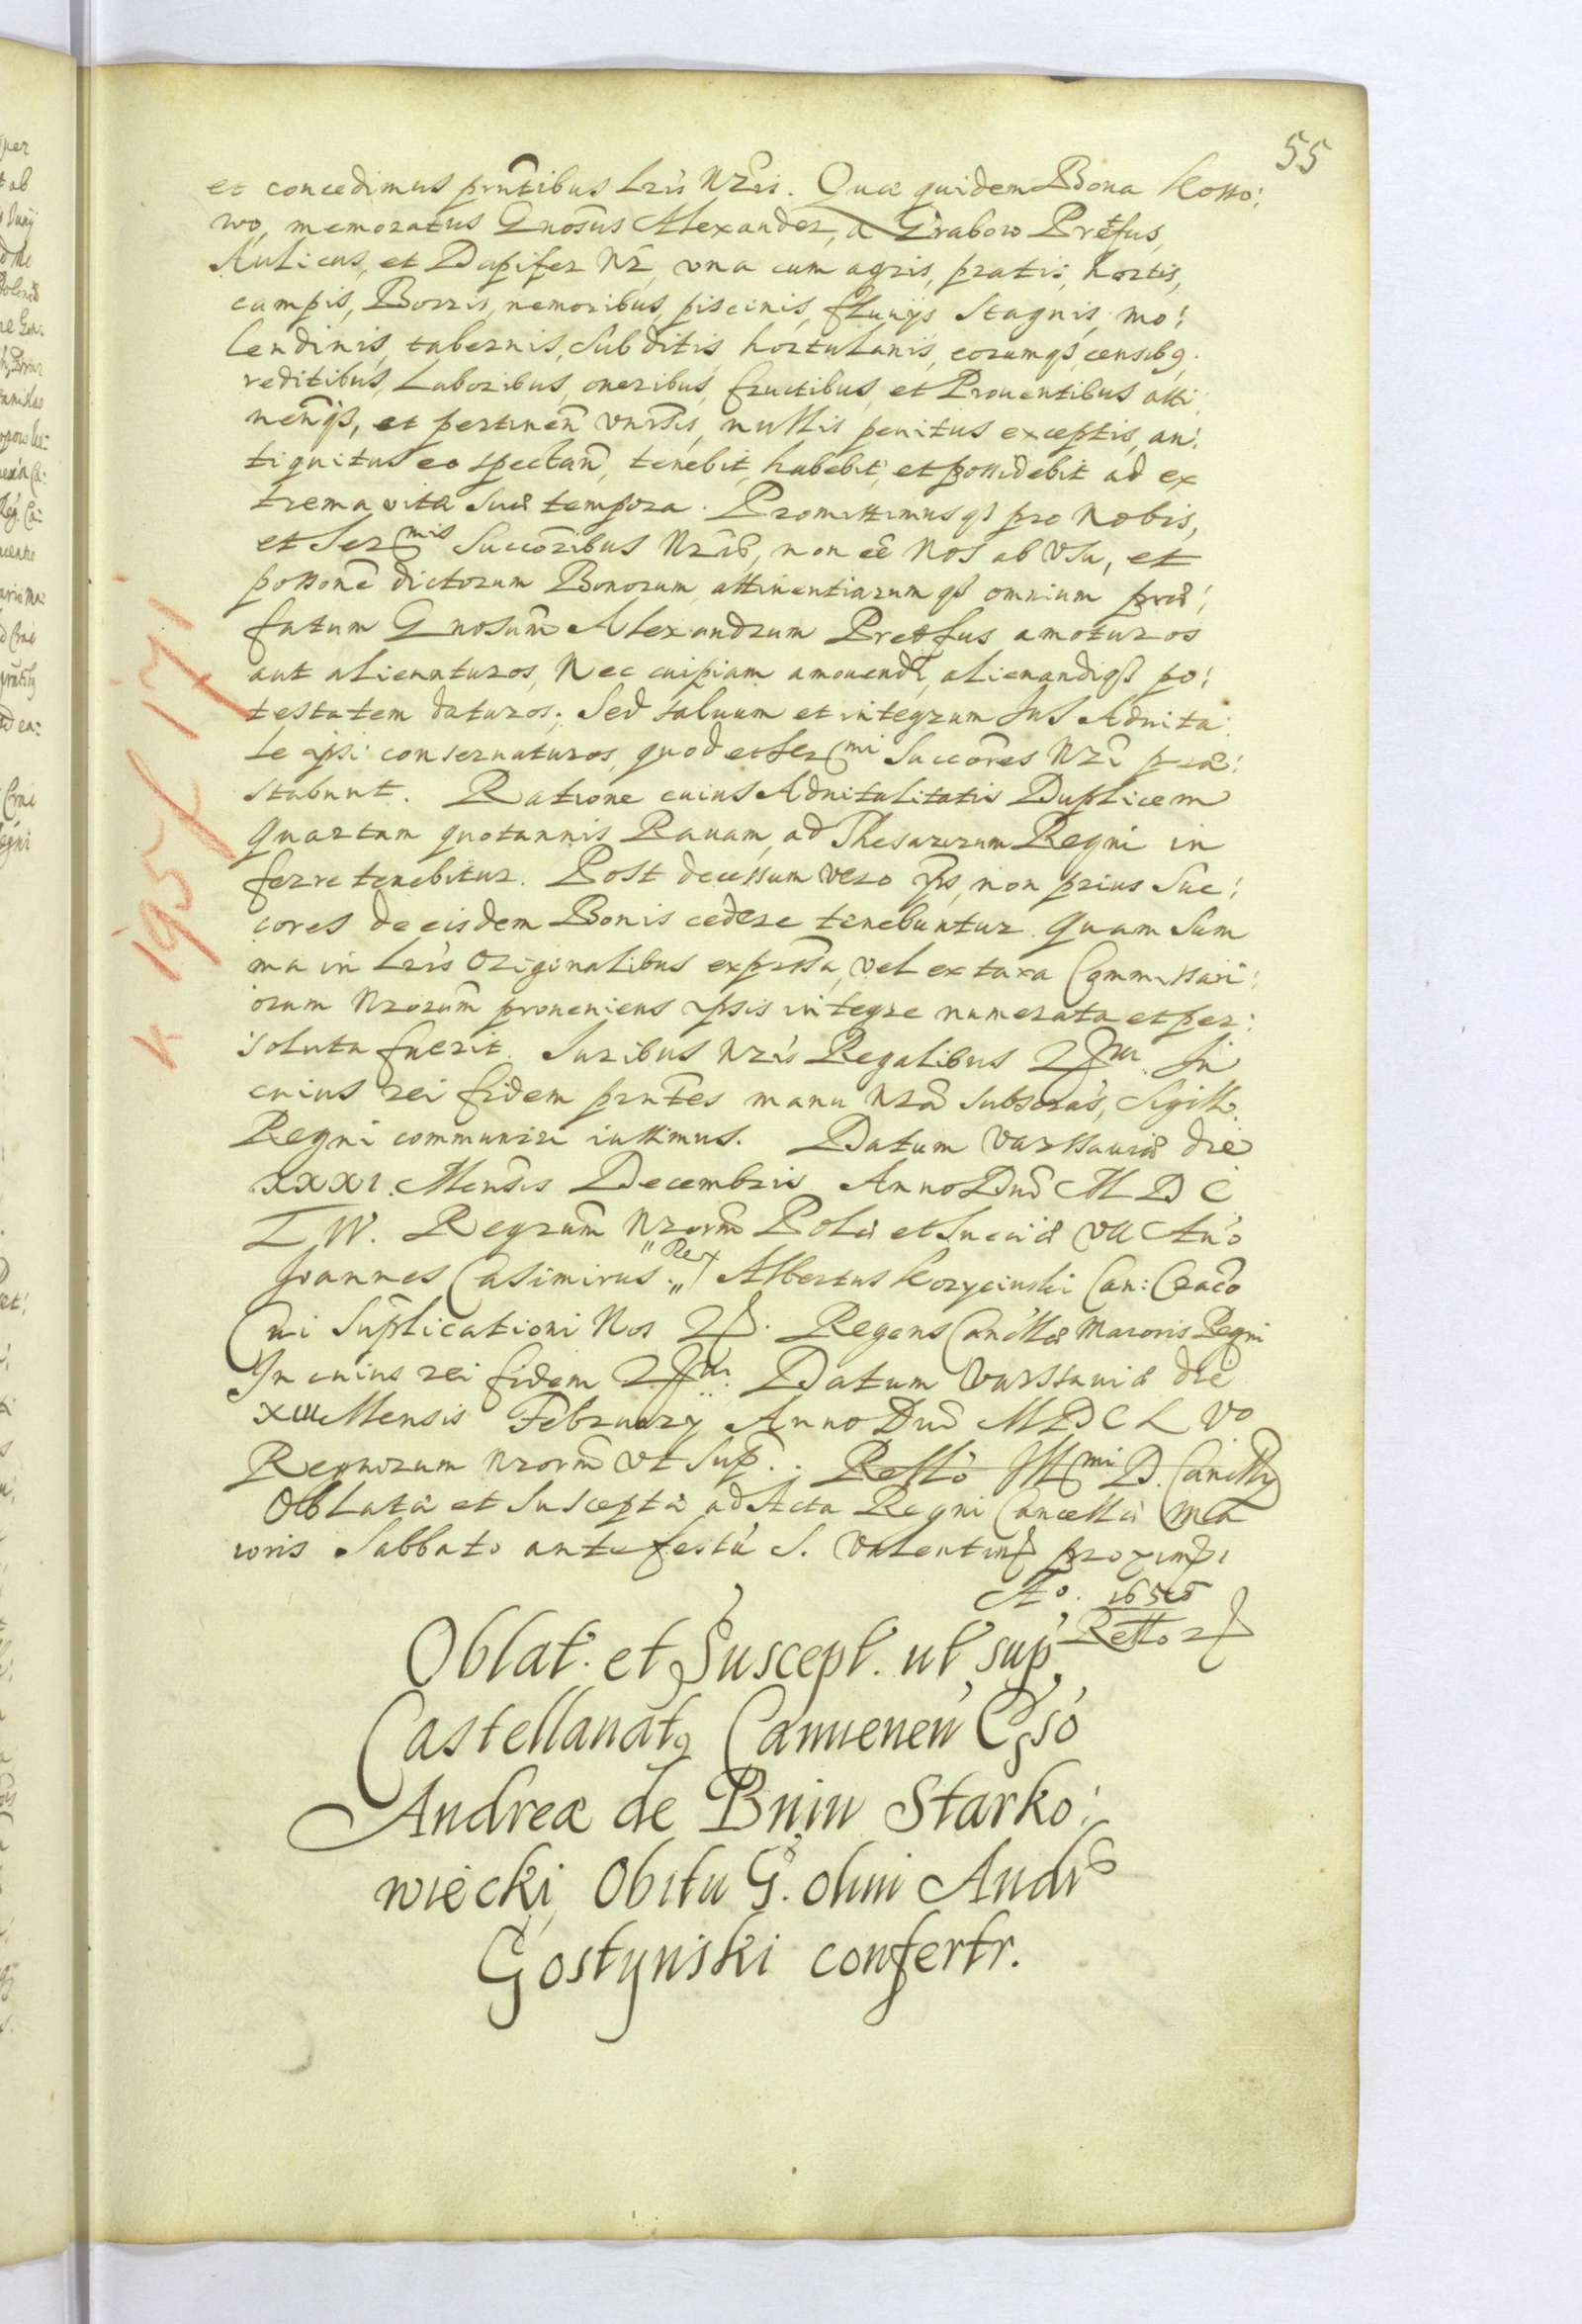 55
et concedimus prntibus Lris Nris. Quæ quidem Bona Kosso:
wo, memoratus Gnosus Alexander, a Grabow Pretfus,
Aulicus, et Dapifer Nr, una cum agris, pratis, hortis,
campis, Borris, nemoribus, piscinis, fluuijs Stagnis, mo:
lendinis, tabernis, Subditis, hortulanis, eorumqs censibq.
reditibus, Laboribus, oneribus, fructibus, et Prouentibus atti
nenqs, et pertinen vnrsis, nullis penitus exceptis, an:
tiquitus eo spectan, tenebit, habebit, et possidebit ad ex
trema vitæ suæ tempora. Promittimusqs pro Nobis,
et Ser mis Succoribus Nris, non eē Nos ab vsu, et
possone dictorum Bonorum, attinentiarumqs omnium præ:
fatum Gnosum Alexandrum Pretfus amoturos
aut alienaturos, Nec cuipiam amouendi, alienandiqs po:
testatem daturos; Sed saluum et integrum Ius Aduita:
le ipsi conseruaturos, quod et Ser mi Succores Nri præ:
stabunt. Ratione cuius Aduitalitatis Duplicem
quartam quotannis Rauam, ad Thesaurum Regni in
ferre tenebitur. Post decessum vero ips, non prius Suc:
cores de eisdem Bonis cedere tenebuntur quam Sum
ma in Lris Originalibus exprssa, vel ex taxa Commissari:
orum Nrorum proueniens ipsis integre numerata et per:
soluta fuerit. Iuribus Nris Regalibus In
cuius rei fidem prntes manu Nra subscras, Sigill.
Regni communiri iussimus. Datum Varssauiæ die
XXXI. Mensis Decembris Anno Dni M D C
L IV. Regrum Nrorm Polæ et Sueciæ VII Ano
Joannes Casimirus Rex Albertus Korycinski Can: Craco
Cui Suplicationi Nos Regens Cancllæ Maioris Regni
In cuius rei fidem Datum Varssauiæ die
XIII Mensis February Anno Dni M D C L Vo
Regnorum Nrorm vt Sup. Relto Ill mi D. Cancllrij
Oblata et Suscepta ad Acta Regni Cancellæ Ma
ioris Sabbato ante festū S. Valentini proximi
Ao. 1655
Relto
Oblat. et Suscept. ut sup
Castellanatq Camienen Gso
Andreæ de Bnin Starko:
wiecki, Obitu G. olim Andr
Gostynski confertr.
K 195 f 171